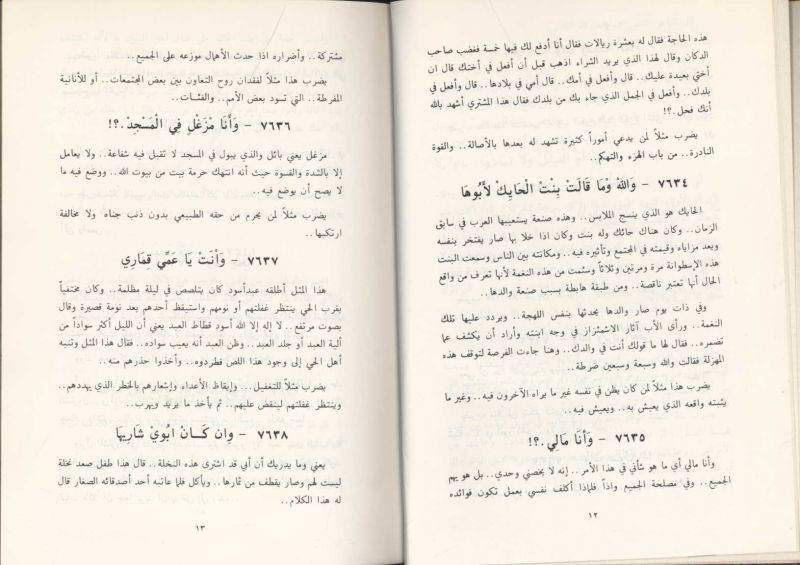 هذه الحاجة فقال له بعشرة ريالات فقال أنا أدفع لك فيها خمسة فغضب صاحب
الدكان وقال لهذا الذي يريد الشراء اذهب قبل أن أفعل في أختك قال ان
أختي بعيدة عليك.. قال وأفعل في أمك.. قال أمي في بلادها.. قال وأفعل في
بلدك.. وأفعل في الجمل الذي جاء بك من بلدك فقال هذا المشتري أشهد بالله
أنك فحل.!؟
يضرب مثلاً لمن يدعي أموراً كثيرة تشهد له بعدها بالأصالة.. والقوة
النادرة.. من باب الهزء والتهكم..
٧٦٣٤ - وَاللهْ وْمَا قَالَتْ بِنْتْ الْحَايِكْ لأَبُوهَا
الحايك هو الذي ينسج الملابس.. وهذه صنعة يستعيبها العرب في سابق
الزمان.. وكان هناك حائك وله بنت وكان اذا خلا بها صار يفتخر بنفسه
ويعد مزاياه وقيمته في المجتمع وتأثيره فيه.. ومكانته بين الناس وسمعت البنت
هذه الإسطوانة مرة ومرتين وثلاثاً وسئمت من هذه النغمة لأنها تعرف من واقع
الحال أنها تعتبر ناقصة.. ومن طبقة هابطة بسبب صنعة والدها..
وفي ذات يوم صار والدها يحدثها بنفس اللهجة.. ويردد عليها تلك
النغمة.. ورأى الأب آثار الاشمئزاز في وجه ابنته وأراد أن يكشف عما
تضمره.. فقال لها ما قولك أنت في والدك.. وهنا جاءت الفرصة لتوقف هذه
المهزلة فقالت والله وسبعة وسبعين ضرطة..
يضرب هذا مثلاً لمن كان يظن في نفسه غير ما يراه الآخرون فيه.. وغير ما
يثبته واقعه الذي يعيش به.. ويعيش فيه..
٧٦٣٥ - وَأَنَا مَالِي.؟!
وأنا مالي أي ما هو شأني في هذا الأمر.. إنه لا يخصني وحدي.. بل هو يهم
الجميع.. وفي مصلحة الجميع واذاً فلماذا أكلف نفسي بعمل تكون فوائده
١٢
مشتركة.. وأضراره اذا حدث الأهمال موزعه على الجميع..
يضرب هذا مثلاً لفقدان روح التعاون بين بعض المجتمعات.. أو للأنانية
المفرطة.. التي تسود بعض الأمم.. والفئات..
٧٦٣٦ - وَأَنَا مْزَغْلٍ فِي الْمَسْجِدْ.؟!
مزغل يعني بائل والذي يبول في المسجد لا تقبل فيه شفاعة.. ولا يعامل
إلا بالشدة والقسوة حيث أنه انتهك حرمة بيت من بيوت الله.. ووضع فيه ما
لا يصح أن يوضع فيه..
يضرب مثلاً لمن يحرم من حقه الطبيعي بدون ذنب جناه ولا مخالفة
ارتكبها..
٧٦٣٧ - وَأَنْتْ يَا عَمِّي قِمَارِي
هذا المثل أطلقه عبدأسود كان يتلصص في ليلة مظلمة.. وكان مختفياً
بقرب الحي ينتظر غفلتهم أو نومهم واستيقظ أحدهم بعد نومة قصيرة وقال
بصوت مرتفع.. لا إله إلا الله أسود قطاط العبد يعني أن الليل أكثر سواداً من
ألية العبد أو جلد العبد.. وظن العبد أنه يعيب سواده.. فقال هذا المثل وتنبه
أهل الحي إلى وجود هذا اللص فطردوه.. وأخذوا حذرهم منه..
يضرب مثلاً للتغفيل... وإيقاظ الأعداء وإشعارهم بالخطر الذي يهددهم..
وينتظر غفلتهم لينقض عليهم.. ثم يأخذ ما يريد ويهرب..
٧٦٣٨ - وِانْ كَـانْ ابُويْ شَارِيهَا
يعني وما يدريك أن أبي قد اشترى هذه النخلة.. قال هذا طفل صعد نخلة
ليست لهم وصار يقطف من ثمارها.. ويأكل فلما عاتبه أحد أصدقائه الصغار قال
له هذا الكلام..
١٣